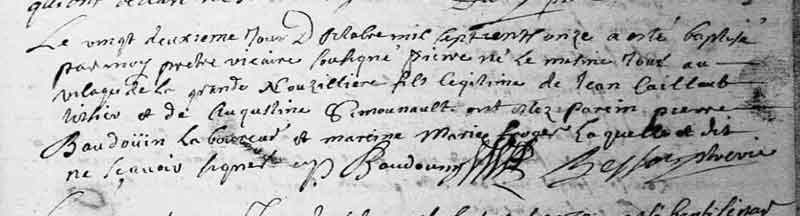 Le vingt deuxieme Jour D octobre mil sept cent onze a esté baptisé
par moy pretre vicaire soussigné pierre né le mesme Jour au
vilage de la grande Nouzilliere fils legitime de Jean Caillaut
et de Augustine Simounault ont estez parein pierre
Baudoüin laboureur et mareine Marie froger laquelle a dit
ne scavoir signer Baudouin